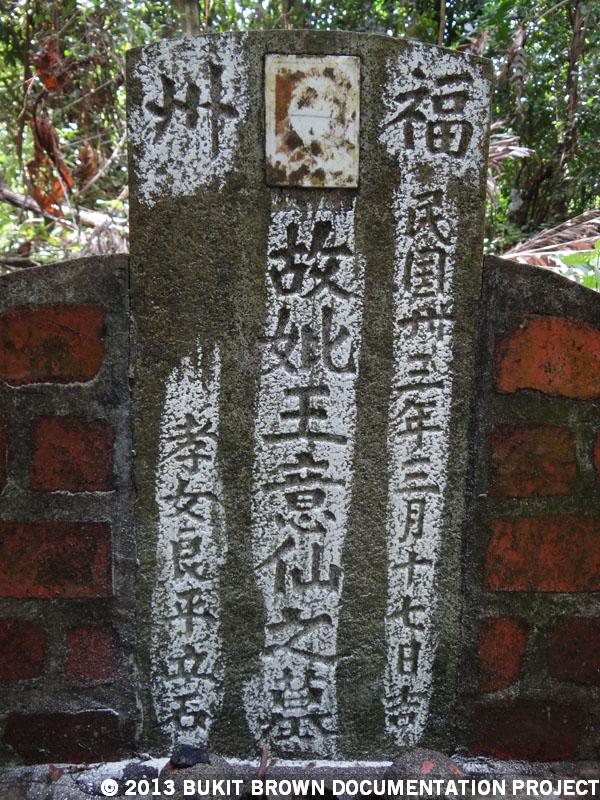 福州
民国卅三年三月十七日吉
故妣王意仙之墓
孝女良平立石
© 2013 BUKIT BROWN DOCUMENTATION PROJECT